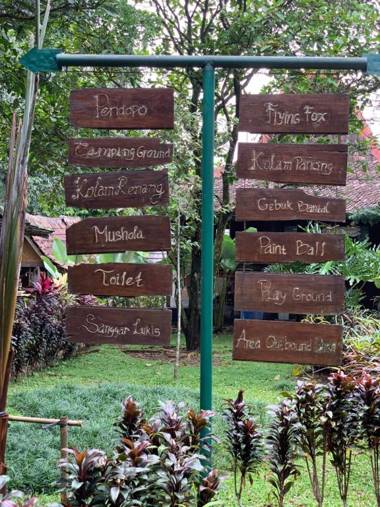 Pendopo
Camping Ground
Kolam Renang
Mushola
Toilet
Sanggar Lukis
Flying Fox
Kolam Pancing
Gebuk Bantal
Paint Ball
Play Ground
Area Outbound